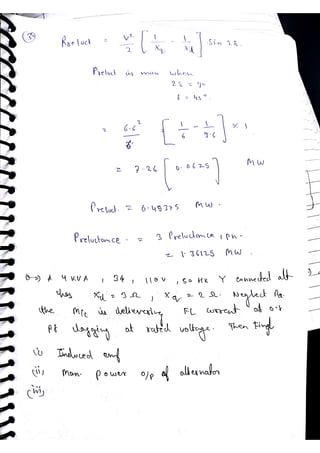 (39)
Preluct = V²/2 [ 1/Xq - 1/Xd ] Sin 2δ.
Preluct is max when
2δ = 90
δ = 45°.
= 6.6²/ [ 1/6 - 1/9.6 ] × 1
= 7.26 [ 0.0625 ] MW
Preluct. = 0.45375 MW.
Preluctance = 3 Preluctance, ph.
= 1.36125 MW.
A 4 KVA, 3ϕ, 110V, 50 HZ Y connected alt
has Xd = 3Ω, Xq = 2Ω. Neglect Ra.
the M/c is delivering FL current at 0.8
Pf lagging at rated voltage. Then find
(i) Induced emf
(ii) Max. power o/p of alternator
(iii)